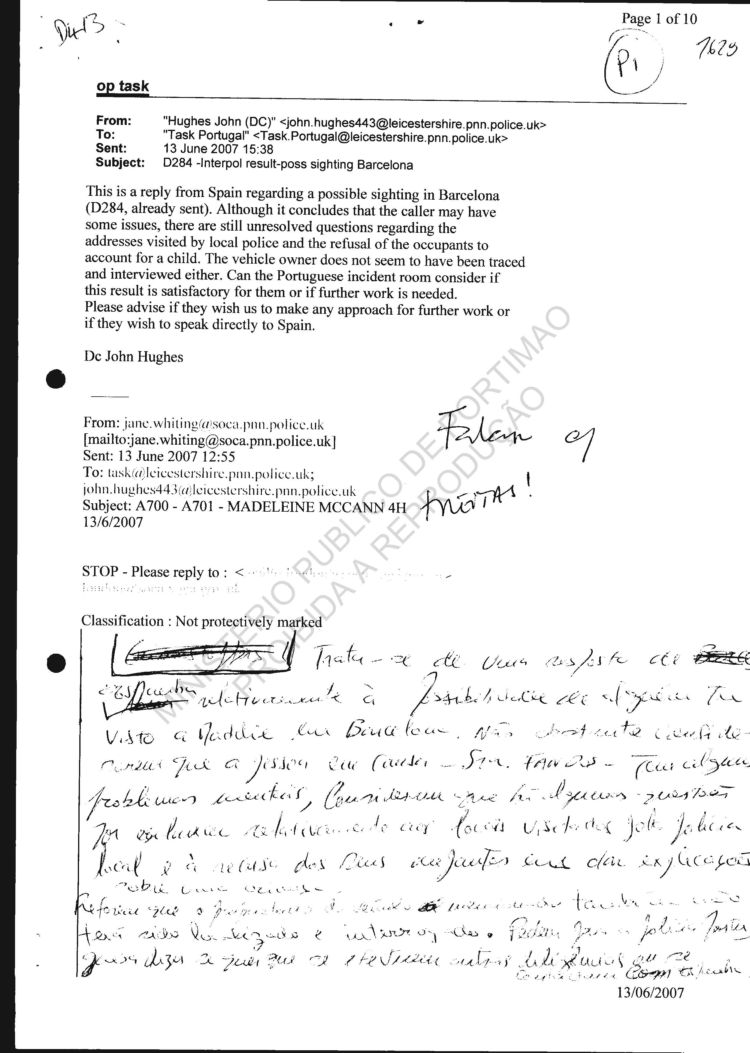 D43
Page 1 of 10
P1
7629
op task
From: "Hughes John (DC)" <john.hughes443@leicestershire.pnn.police.uk>
To: "Task Portugal" <Task.Portugal@leicestershire.pnn.police.uk>
Sent: 13 June 2007 15:38
Subject: D284 -Interpol result-poss sighting Barcelona
This is a reply from Spain regarding a possible sighting in Barcelona
(D284, already sent). Although it concludes that the caller may have
some issues, there are still unresolved questions regarding the
addresses visited by local police and the refusal of the occupants to
account for a child. The vehicle owner does not seem to have been traced
and interviewed either. Can the Portuguese incident room consider if
this result is satisfactory for them or if further work is needed.
Please advise if they wish us to make any approach for further work or
if they wish to speak directly to Spain.
Dc John Hughes
From: jane.whiting@soca.pnn.police.uk
[mailto:jane.whiting@soca.pnn.police.uk]
Sent: 13 June 2007 12:55
To: task@leicestershire.pnn.police.uk;
john.hughes443@leicestershire.pnn.police.uk
Subject: A700 - A701 - MADELEINE MCCANN 4H
13/6/2007
Falar
FREITAS!
STOP - Please reply to : <
Classification : Not protectively marked
Trata-se de uma resposta de
Espanha relativamente à possibilidade de alguém ter
visto a Maddie em Barcelona. Não obstante conside-
rarem que a pessoa em causa - Sra. - tem alguns
problemas mentais, consideram que há algumas questões
por esclarecer relativamente aos locais visitados pela polícia
local e à recusa dos seus ocupantes em dar explicações
sobre uma
Referem que o proprietário do veículo mencionado também não
terá sido localizado e interrogado. Pedem para a polícia
dizer se quer que se efectuem outras diligências ou se
com Espanha
13/06/2007
MINISTÉRIO PUBLICO DE PORTIMAO
PROIBIDA A REPRODUÇÃO